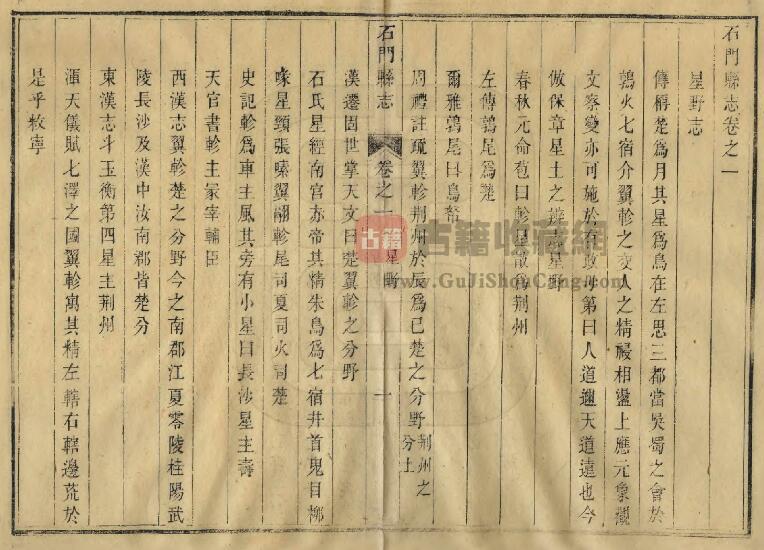 石門縣志卷之一
星野志
傳稱楚爲月其星爲鳥在左思三都當吳蜀之會於
鶉火七宿介翼軫之交人之精祲相盪上應元象觀
文察變亦可施於有政毋第曰人道邇天道遠也今
倣保章星土之辨志星野
春秋元命苞曰軫星散爲荆州
左傳鶉尾爲楚
爾雅鶉尾曰鳥帑
周禮註疏翼軫荆州於辰爲巳楚之分野荆州之分土
石門縣志
卷之一
星野
一
漢遷固世掌天文曰楚翼軫之分野
石氏星經南宮赤帝其精朱鳥爲七宿井首鬼目柳
喙星頸張嗉翼翮軫尾司夏司火司楚
史記軫爲車主風其旁有小星曰長沙星主壽
天官書軫主冢宰輔臣
西漢志翼軫楚之分野今之南郡江夏零陵桂陽武
陵長沙及漢中汝南郡皆楚分
東漢志斗玉衡第四星主荆州
渾天儀賦七澤之國翼軫寓其精左轄右轄邊荒於
是乎敉寧
古籍
古籍收藏網
www.GuJiShouCang.com